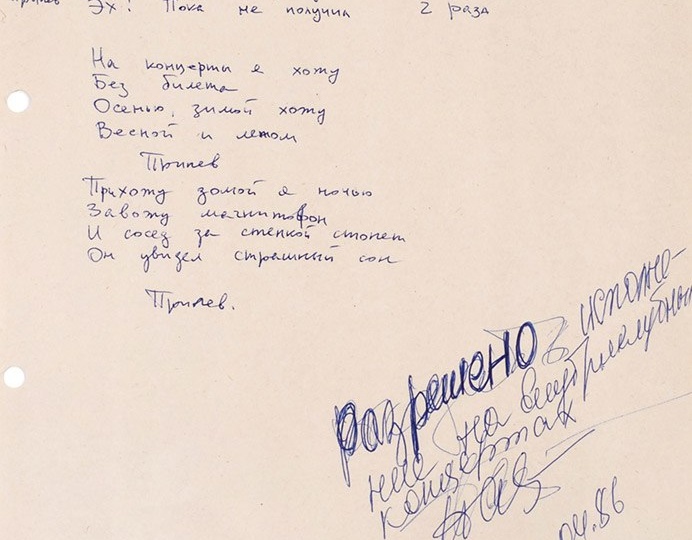 Припев Эх! Пока не получил 2 раза
На концерты я хожу
Без билета
Осенью, зимой хожу
Весной и летом
Припев
Прихожу домой я ночью
Завожу магнитофон
И сосед за стенкой стонет
Он увидел страшный сон
Припев.
Разрешено исполне-
ние на внутриклубных
концертах
04.86